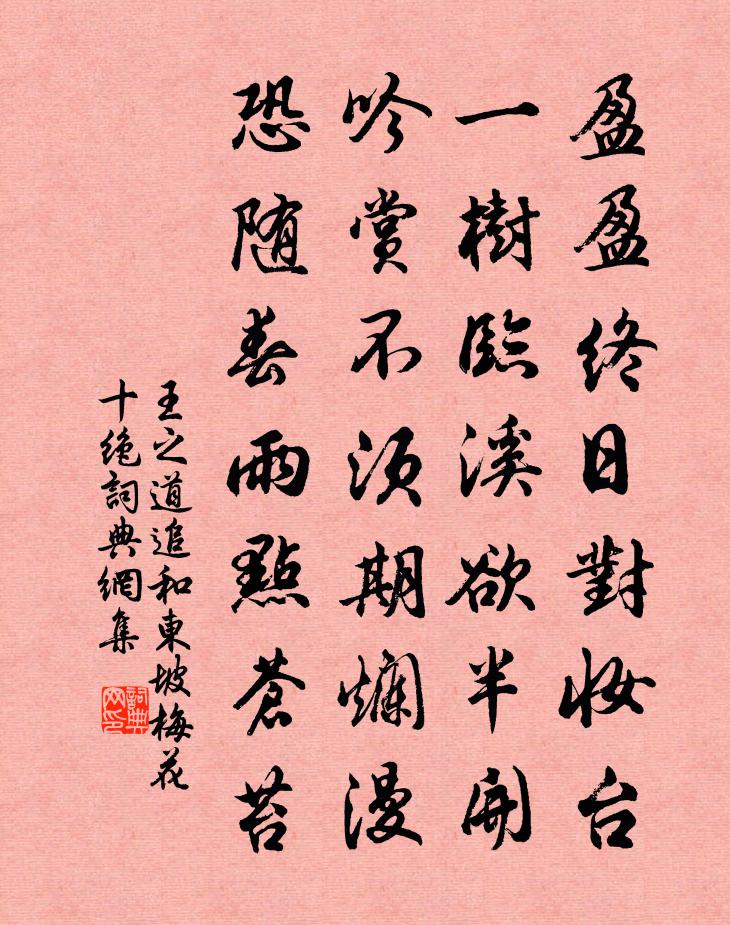 盈盈終日對妝台
一樹臨溪欲半開
吟賞不須期爛漫
恐随春雨點蒼苔
王之道追和東坡梅花
十絶詞典網集
詞典網印